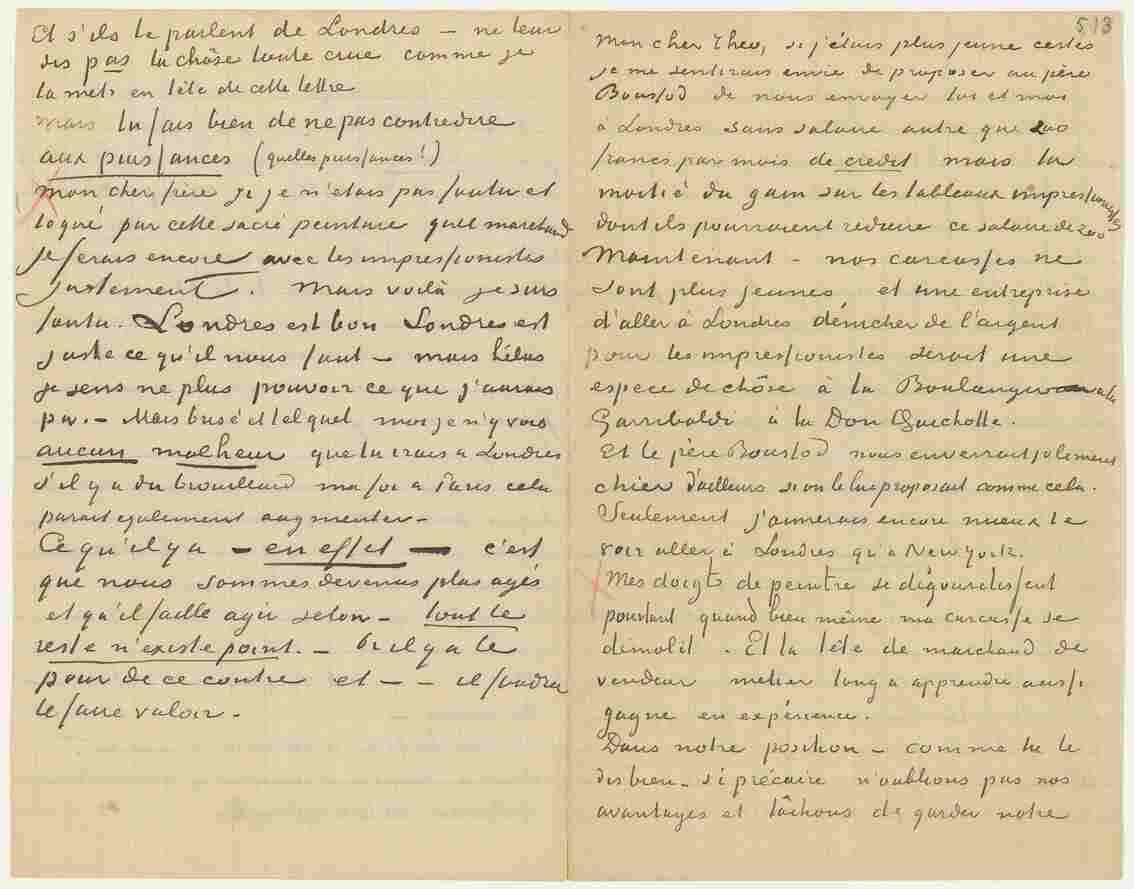 Et s'ils te parlent de Londres – ne leur
dis pas la chôse toute crue comme je
la mets en tête de cette lettre
Mais tu fais bien de ne pas contredire
aux puissances (quelles puissances!)
mon cher frère si je n'étais pas foutu et
toqué par cette sacré peinture quel marchand
je ferais encore avec les impressionistes
justement. Mais voilà je suis
foutu. Londres est bon Londres est
juste ce qu'il nous faut – mais hélas
je sens ne plus pouvoir ce que j'aurais
pu. – Mais brisé et tel quel moi je n'y vois
aucun malheur que tu irais a Londres
s'il y a du brouillard ma foi a Paris cela
parait egalement augmenter –
Ce qu'il y a – en effet – c'est
que nous sommes devenus plus agés
et qu'il faille agir selon – tout le
reste n'existe point. – Or il y a le
pour de ce contre et – – il faudra
le faire valoir –
513
Mon cher Theo, si j'étais plus jeune certes
je me sentirais envie de proposer au père
Boussod de nous envoyer toi et moi
à Londres sans salaire autre que 200
francs par mois de credit mais la
moitié du gain sur les tableaux impressionistes
dont ils pourraient reduire ce salaire de 200
Maintenant – nos carcasses ne
sont plus jeunes, et une entreprise
d'aller à Londres dénicher de l'argent
pour les impressionistes serait une
espece de chôse à la Boulanger a la
Garribaldi à la Don Quichotte.
Et le père Boussod nous enverrait joliement
chier d'ailleurs si on le lui proposait comme cela.
Seulement j'aimerais encore mieux te
voir aller à Londres qu'a New York.
Mes doigts de peintre se dégourdissent
pourtant quand bien même ma carcasse se
démolit. Et la tête de marchand de
vendeur metier long a apprendre aussi
gagne en expérience.
Dans notre position – comme tu le
dis bien – si précaire n'oublions pas nos
avantages et tâchons de garder notre